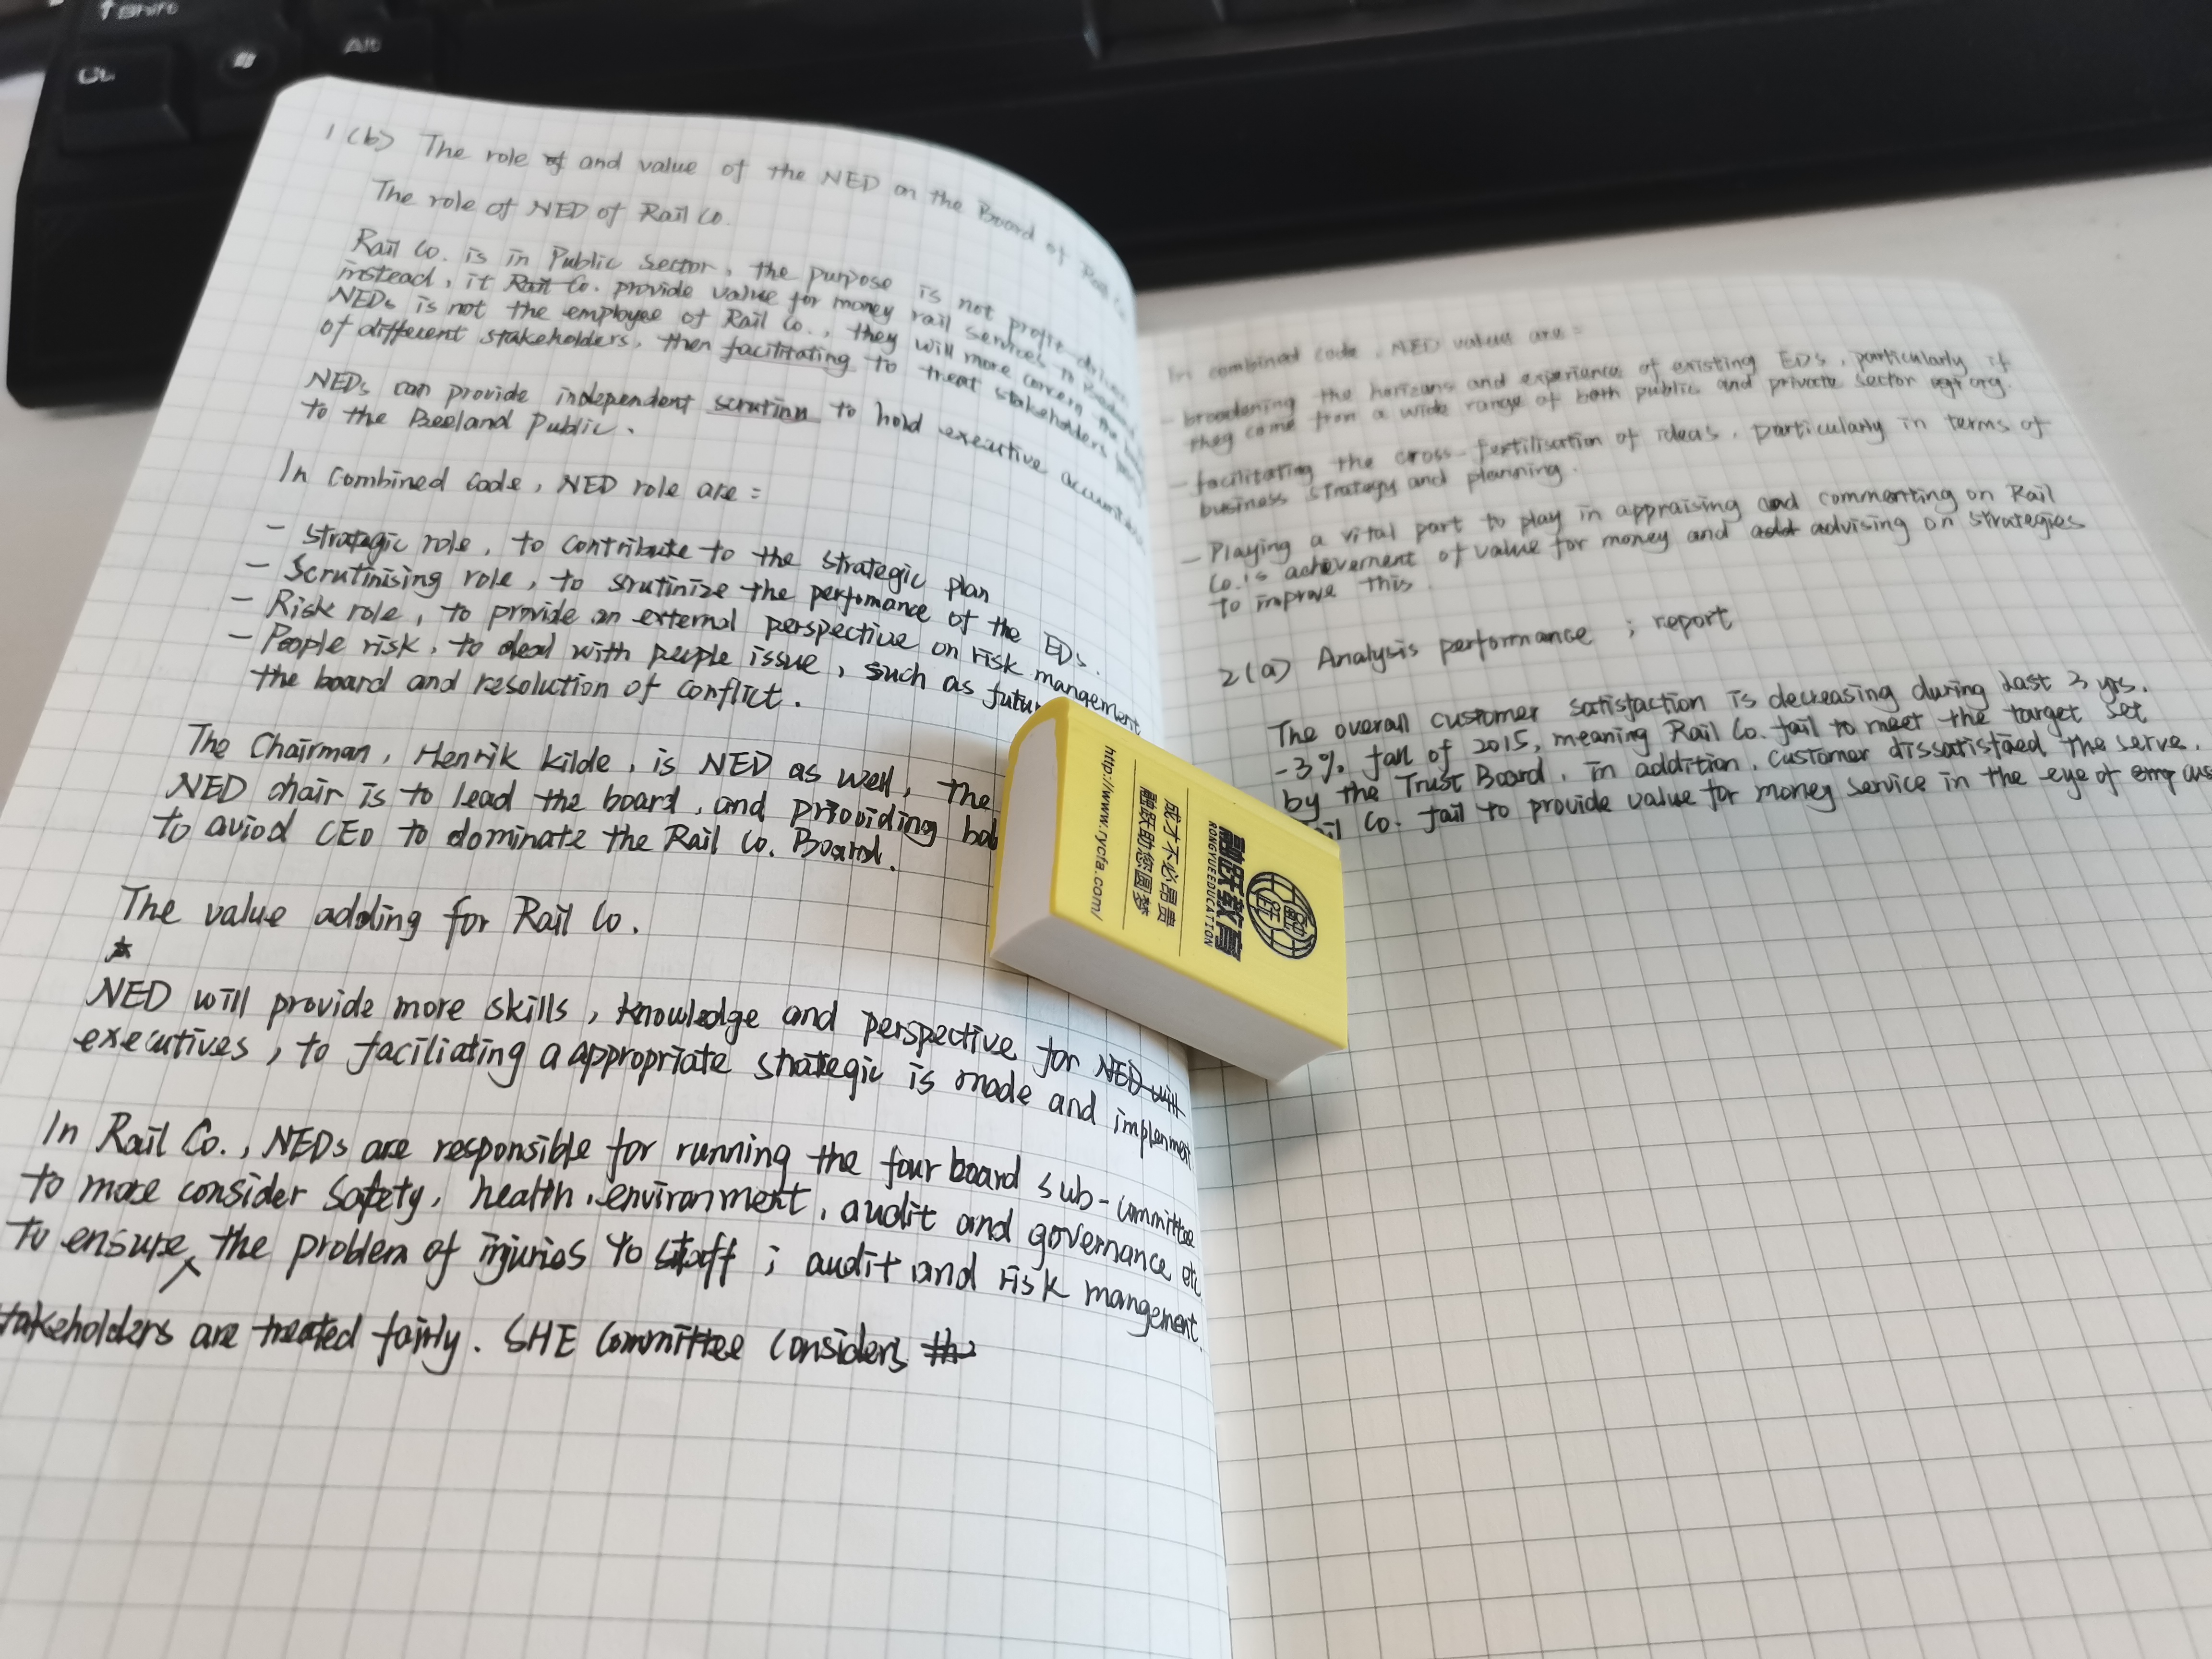 Shift
Alt
1 (b) The role of and value of the NED on the Board of Rail Co
The role of NED of Rail Co.
Rail Co. is in Public Sector, the purpose is not profit-driven
instead, it Rail Co. provide value for money rail services to
NEDs is not the employee of Rail Co., they will more concern the
of different stakeholders, then facilitating to treat stakeholders
NEDs can provide independent scrutiny to hold executive
to the Beeland Public.
In combined code, NED role are:
- strategic role, to contribute to the strategic plan
- Scrutinising role, to scrutinize the perfomance of the EDs.
- Risk role, to provide an external perspective on risk mangement
- People risk, to deal with people issue, such as
the board and resolution of conflict.
The Chairman, Henrik Kilde, is NED as well, the
NED chair is to lead the board, and prioviding
to aviod CEO to dominate the Rail Co. Board.
The value adding for Rail Co.
NED will provide more skills, knowledge and perspective for NED will
executives, to faciliating a appropriate strategic is made and
In Rail Co., NEDs are responsible for running the four board sub-committee
to more consider safety, health, environment, audit and governance etc
to ensure the problem of injuries to staff; audit and risk mangement.
stakeholders are treated fairly. SHE Committee considers
In combined code, NED value are:
- broadening the horizons and experience of existing EDs, particularly if
they come from a wide range of both public and private sector org.
- facilitating the cross-fertilisation of ideas, particularly in terms of
business strategy and planning.
- Playing a vital part to play in appraising and commenting on Rail
Co.'s achievement of value for money and add advising on strategies
to improve this.
2(a) Analysis performance ; report
The overall customer satisfaction is decreasing during last 3 yrs.
-3% fall of 2015, meaning Rail Co. fail to meet the target set
by the Trust Board, in addition, customer dissatisfied the serve.
Co. fail to provide value for money service in the eye of emp
融跃教育
RONGYUEEDUCATION
成才不必昂贵
融跃助您圆梦
http://www.rycfa.com/